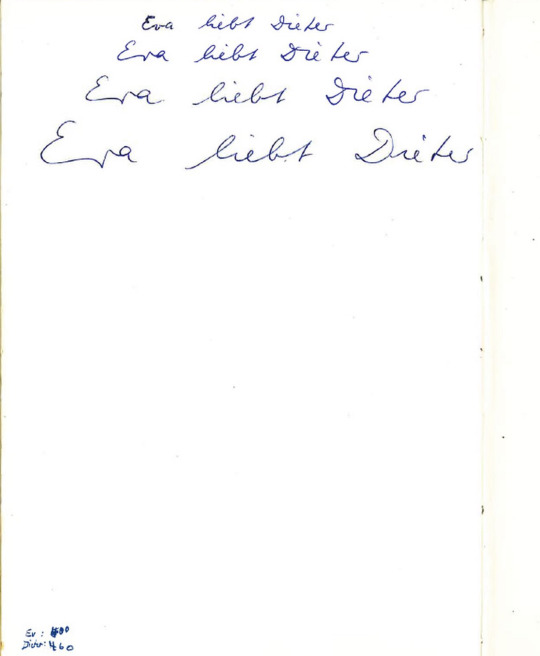 Eva liebt Dieter
Eva liebt Dieter
Eva liebt Dieter
Eva liebt Dieter
Ev :
460